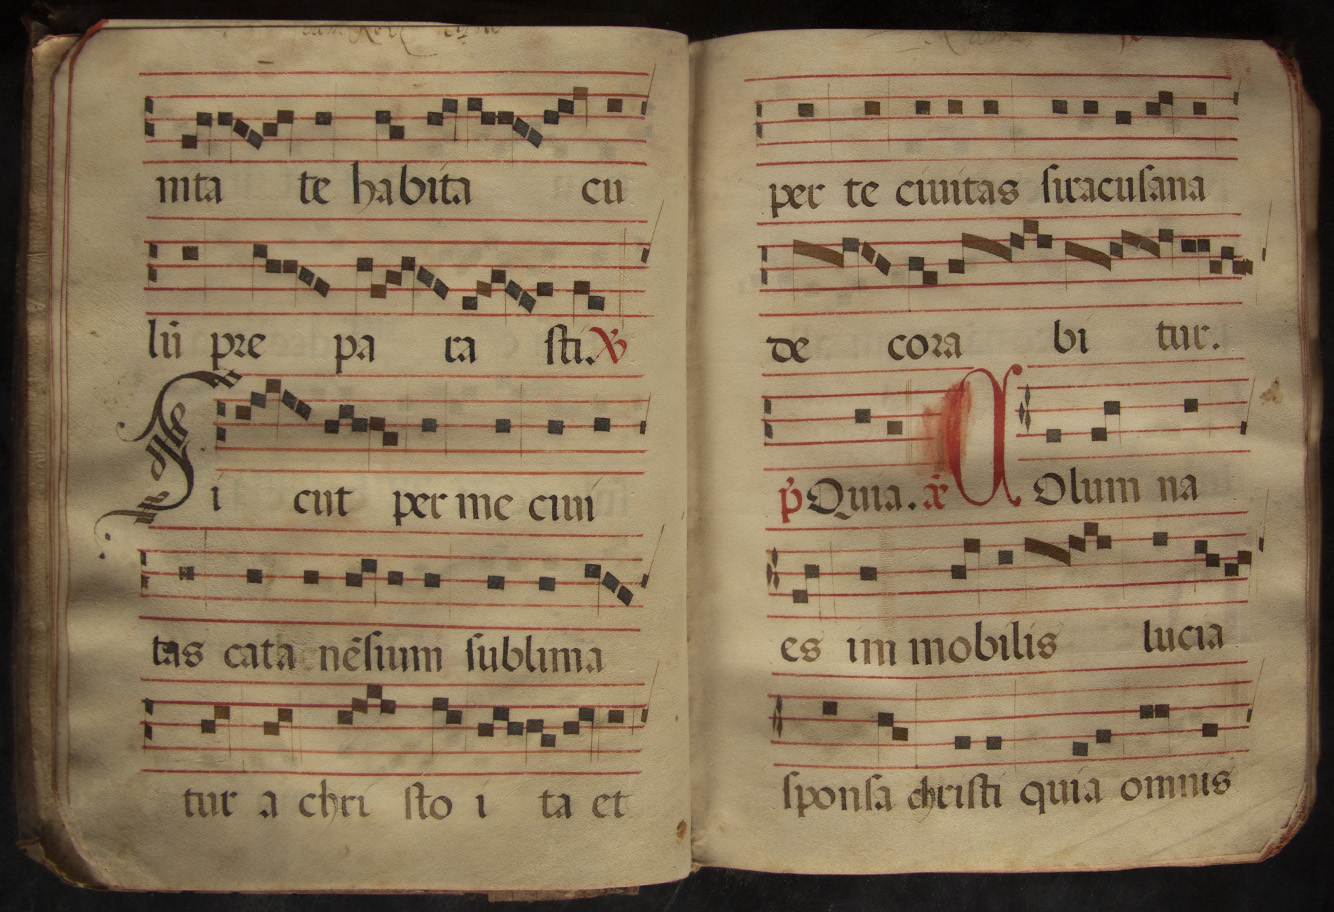 inta te habita cu
lū pre pa ra sti. ℣
Si cut per me ciui
tas cata nēsium sublima
tur a chri sto i ta et
per te ciuitas siracusana
de cora bi tur.
p̄ Quia. añ C Olum na
es im mobilis lucia
sponsa christi quia omnis